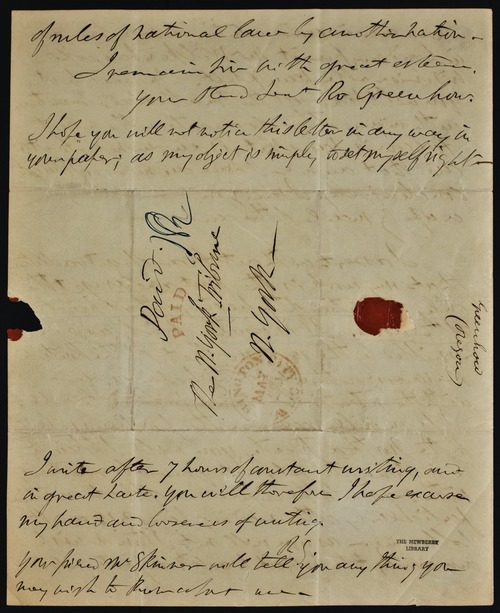 of rules of national law by another nation –
I remain Sir with great esteem,
your Obed Servt Ro Greenhow.
I hope you will not notice this letter in any way in
your paper; as my object is simply to set myself right –
Paid
PAID
The N. York Tribune
N. York –
WASHINGTON CITY
MAY
Greenhow
(Oregon)
I write after 7 hours of constant writing, and
in great haste. You will therefore I hope excuse
my hand and looseness of writing.
RG
Your friend Mr Skinner will tell you any thing you
may wish to know about me –
THE NEWBERRY
LIBRARY